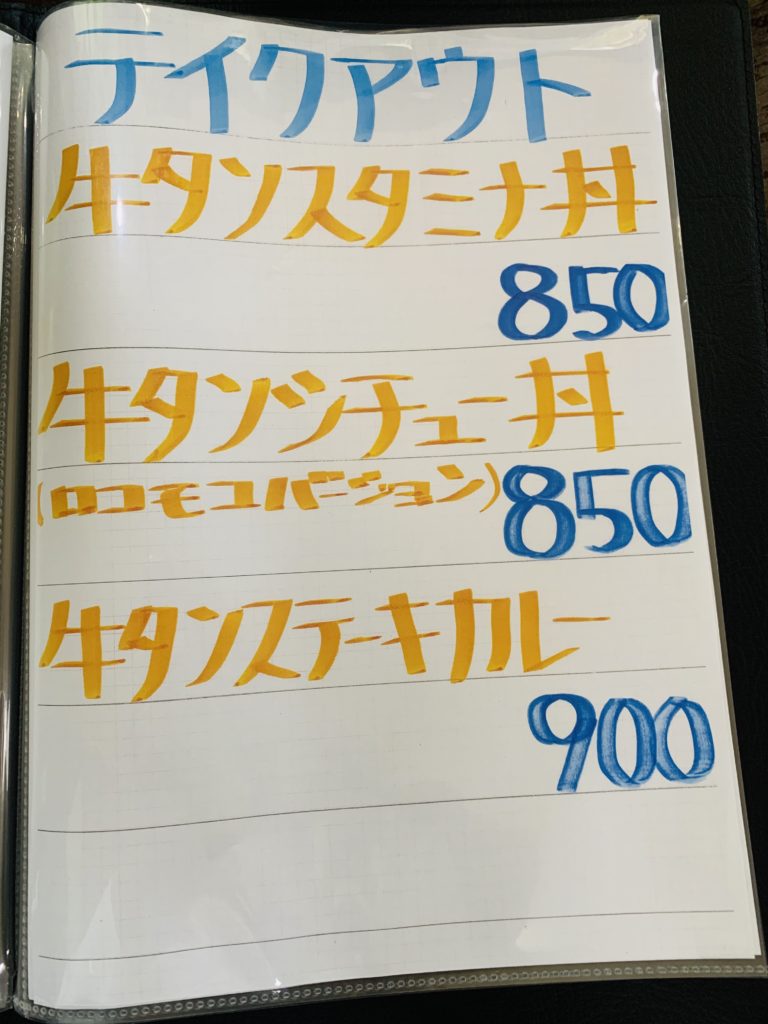 テイクアウト
牛タンスタミナ丼
850
牛タンシチュー丼
(ロコモコバージョン) 850
牛タンステーキカレー
900